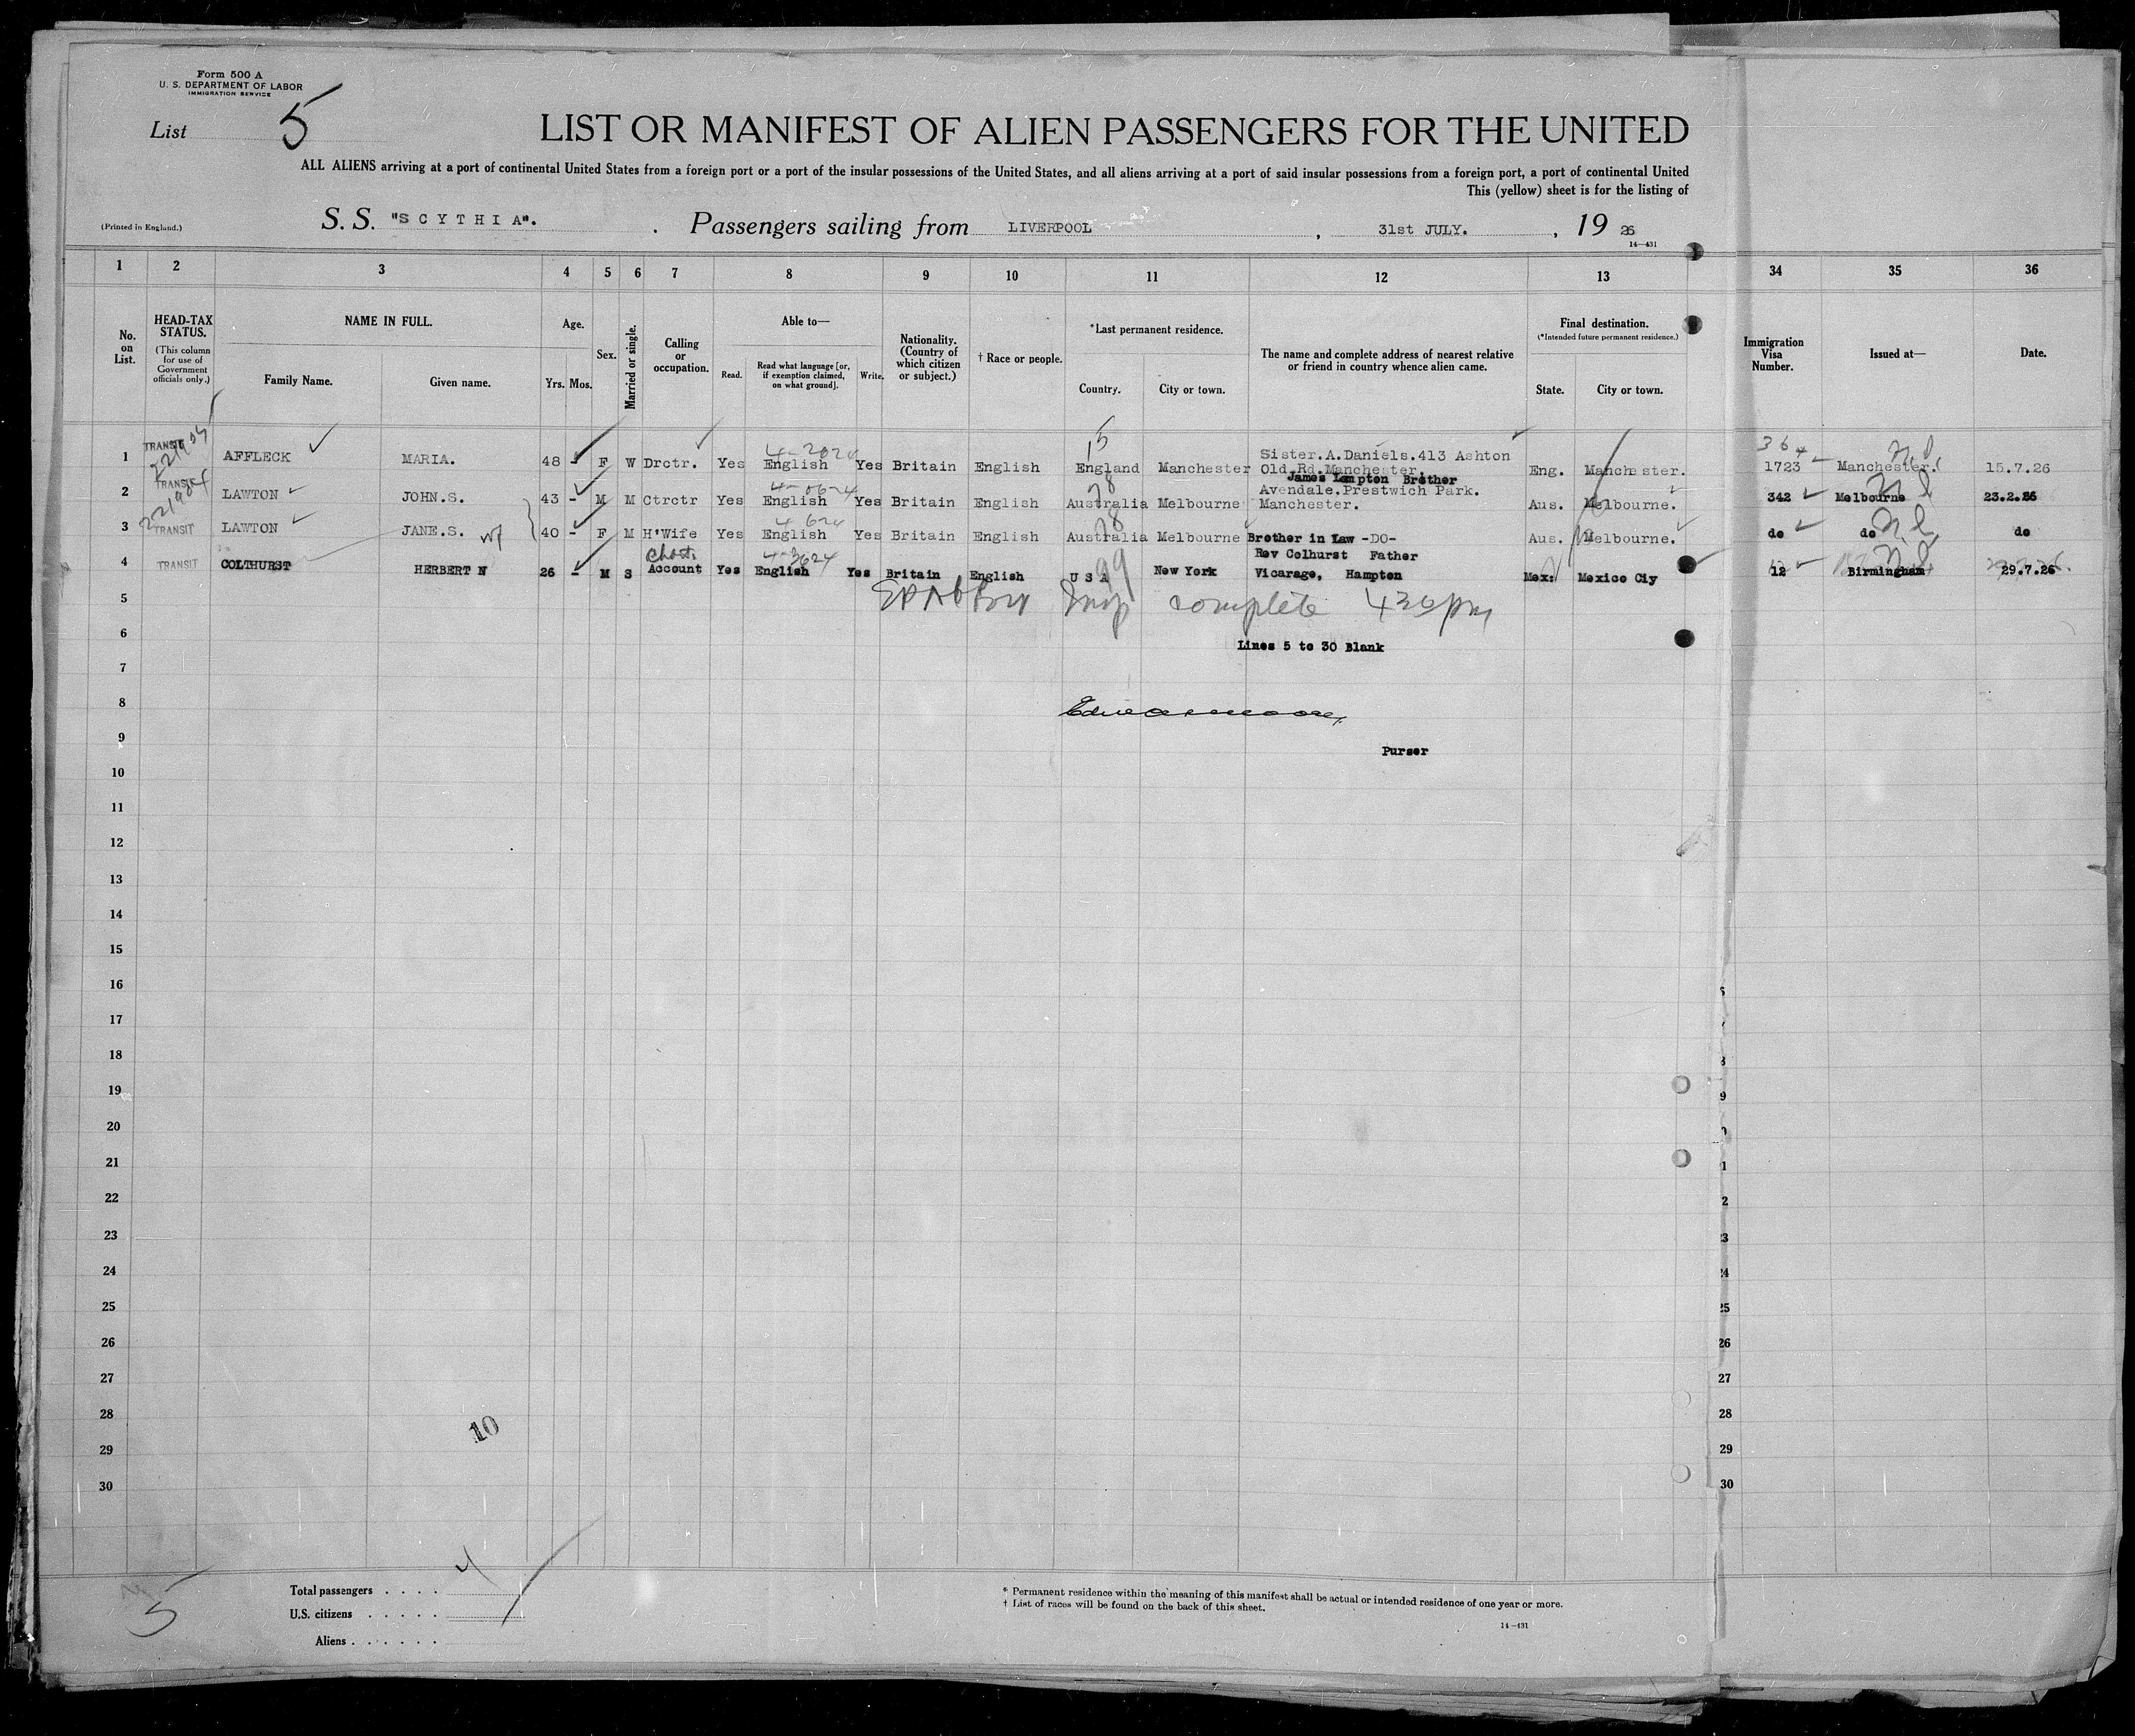 Form 500 A
U. S. DEPARTMENT OF LABOR
IMMIGRATION SERVICE
List 5
LIST OR MANIFEST OF ALIEN PASSENGERS FOR THE UNITED
ALL ALIENS arriving at a port of continental United States from a foreign port or a port of the insular possessions of the United States, and all aliens arriving at a port of said insular possessions from a foreign port, a port of continental United
This (yellow) sheet is for the listing of
(Printed in England.)
S. S. "SCYTHIA". . Passengers sailing from LIVERPOOL , 31st JULY. , 19 26
14—431
1 2 3 4 5 6 7 8 9 10 11 12 13 34 35 36
No. on List.
HEAD-TAX STATUS.
(This column for use of Government officials only.)
NAME IN FULL.
Family Name. Given name.
Age.
Yrs. Mos.
Sex.
Married or single.
Calling or occupation.
Able to—
Read. Read what language [or, if exemption claimed, on what ground]. Write.
Nationality. (Country of which citizen or subject.)
† Race or people.
*Last permanent residence.
Country. City or town.
The name and complete address of nearest relative or friend in country whence alien came.
Final destination.
(*Intended future permanent residence.)
State. City or town.
Immigration Visa Number.
Issued at—
Date.
15
364
1 TRANSIT AFFLECK MARIA. 48 - F W Drctr. Yes English Yes Britain English England Manchester Sister.A.Daniels.413 Ashton Old.Rd.Manchester. Eng. Manchester. 1723 Manchester. 15.7.26
2 TRANSIT LAWTON JOHN.S. 43 - M M Ctrctr Yes English Yes Britain English Australia Melbourne James Lampton Brother Avendale.Prestwich Park. Manchester. Aus. Melbourne. 342 Melbourne 23.2.26
3 TRANSIT LAWTON JANE.S. wf 40 - F M H'Wife Yes English Yes Britain English Australia Melbourne Brother in Law -DO- Aus. Melbourne. do do do
4 TRANSIT COLTHURST HERBERT N 26 - M S Chart. Account Yes English Yes Britain English U S A New York Rev Colhurst Father Vicarage, Hampton Mex: Mexico Ciy 12 Birmingham 29.7.26
99
5 Insp complete 430 pm
6 Lines 5 to 30 Blank
7
8
9 Purser
10
11
12
13
14
15
16
17
18
19
20
21
22
23
24
25
26
27
28
29
30
10
24
25
26
27
28
29
30
Total passengers . . . . 4
U.S. citizens . . . . .
Aliens . . . . . .
5
* Permanent residence within the meaning of this manifest shall be actual or intended residence of one year or more.
† List of races will be found on the back of this sheet.
14—431